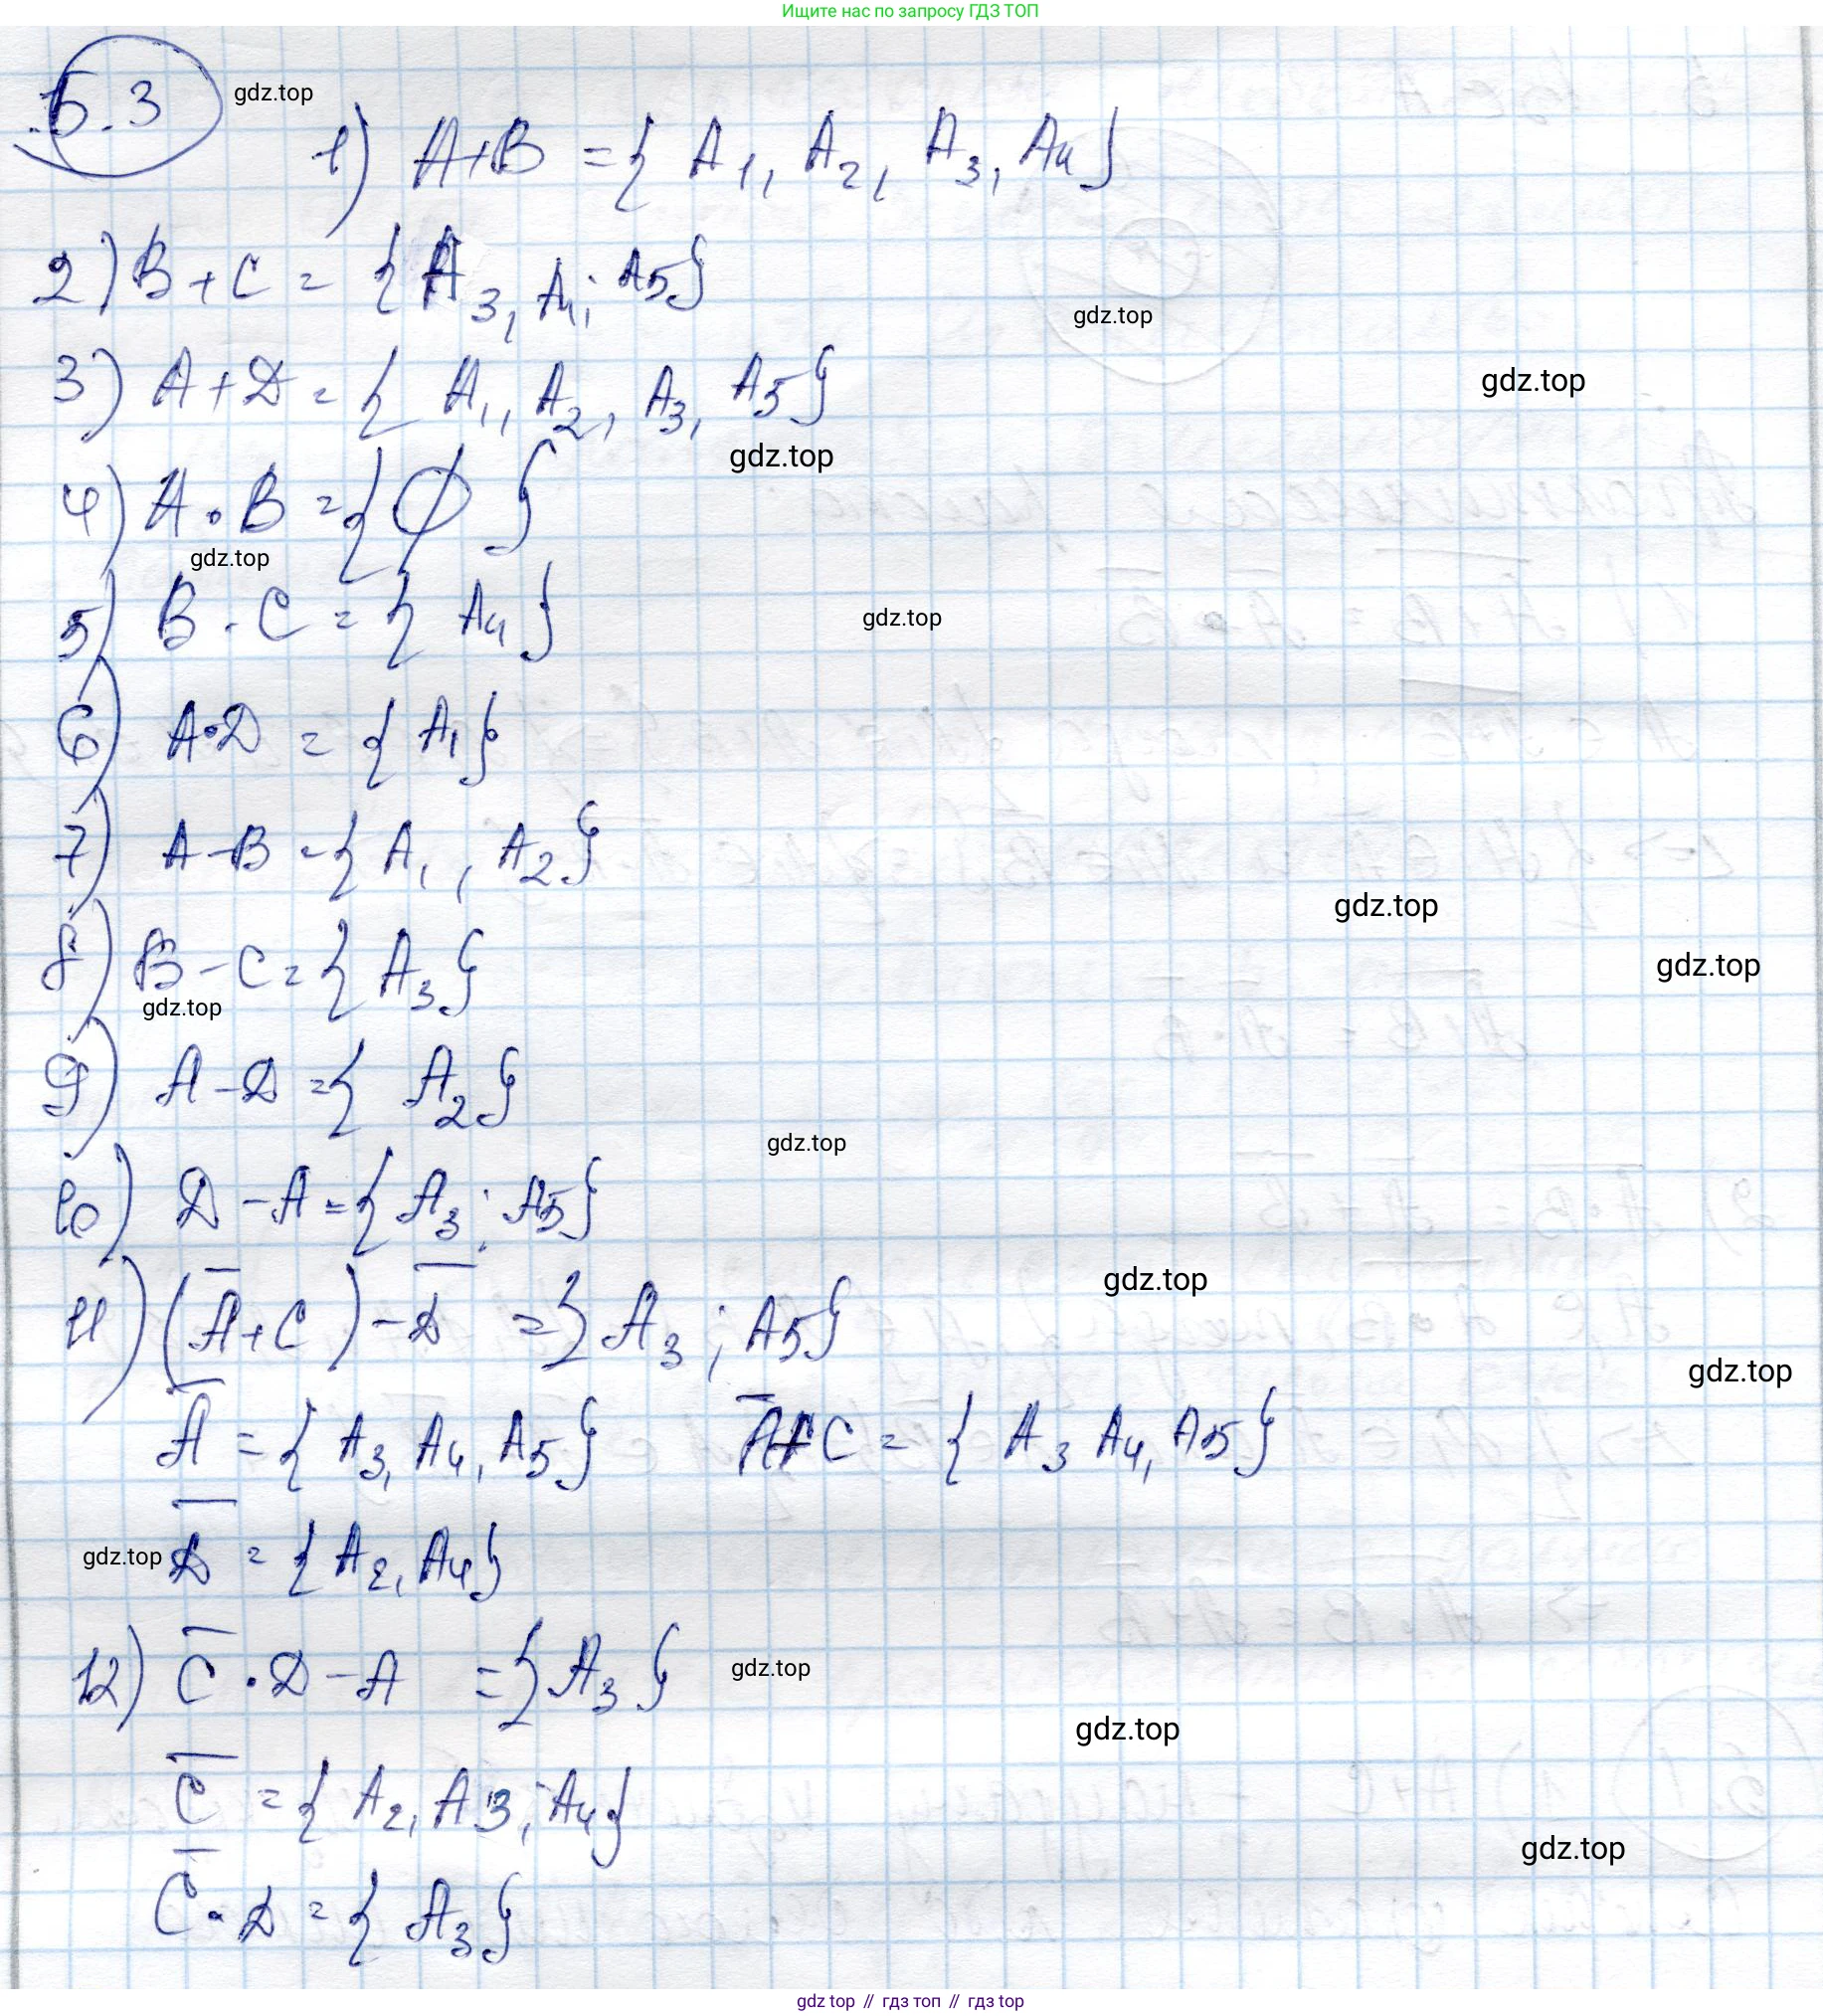 Ищите нас по запросу ГДЗ ТОП
5.3 gdz.top
1) A+B = { A₁, A₂, A₃, A₄}
2) B+C = {A₃, A₄; A5}
gdz.top
3) A+D = { A₁, A₂, A₃, A5}
gdz.top
gdz.top
4) A·B = {Ø}
gdz.top
5) B·C = { A₄}
gdz.top
6) A·D = { A₁}
7) A-B = { A₁, A₂}
gdz.top
8) B-C = { A₃}
gdz.top
gdz.top
9) A-D = { A₂}
gdz.top
10) D-A = { A₃; A5}
gdz.top
11) (A̅+C)-D̅ = { A₃; A5}
gdz.top
A̅ = { A₃, A₄, A5} A̅+C = { A₃ A₄, A5}
gdz.top D̅ = { A₂, A₄}
12) C̅·D-A = { A₃}
gdz.top
gdz.top
C̅ = { A₂, A3, A₄}
gdz.top
C̅·D = { A₃}
gdz top // гдз топ // гдз top